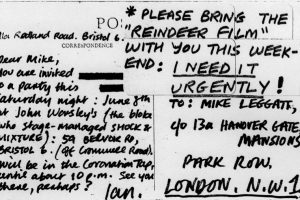 POS
Redland Road. Bristol 6.
CORRESPONDENCE
Dear Mike,
You are invited
to a party this
Saturday night: June 8th
at John Worsley's (the bloke
who stage-managed SHOCK &
MIXTURE): 59 BELVOIR RD,
BRISTOL 6. (off Cromwell Road).
will be in the Coronation Tap,
centre about 10 p.m. See you
there, perhaps?
Ian.
* PLEASE BRING THE
"REINDEER FILM"
WITH YOU THIS WEEK-
END: I NEED IT
URGENTLY!
TO: MIKE LEGGATT,
c/o 13a HANOVER GATE
MANSIONS
PARK ROW,
LONDON. N.W.1